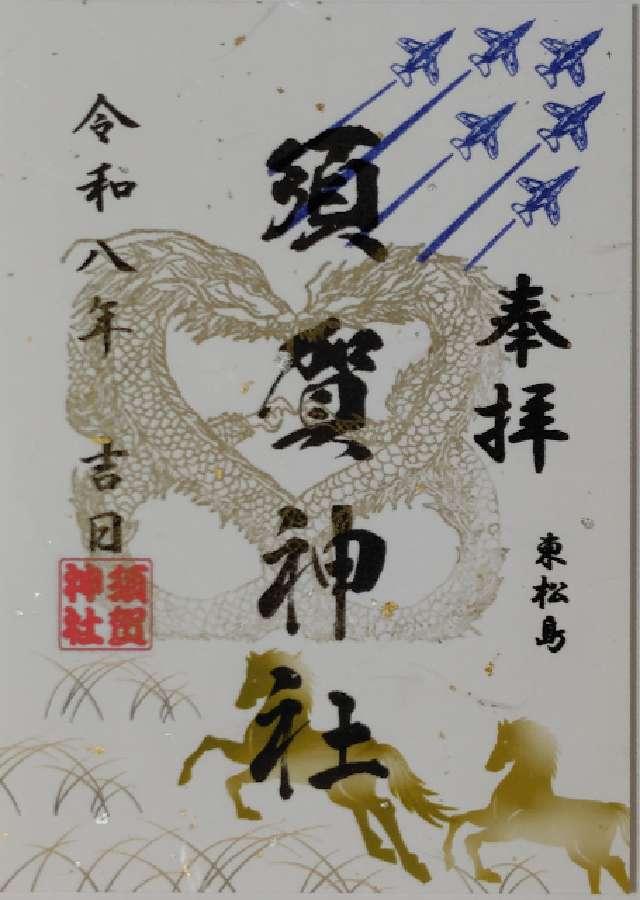 奉拝
東松島
須賀神社
令和八年 吉日
須賀
神社